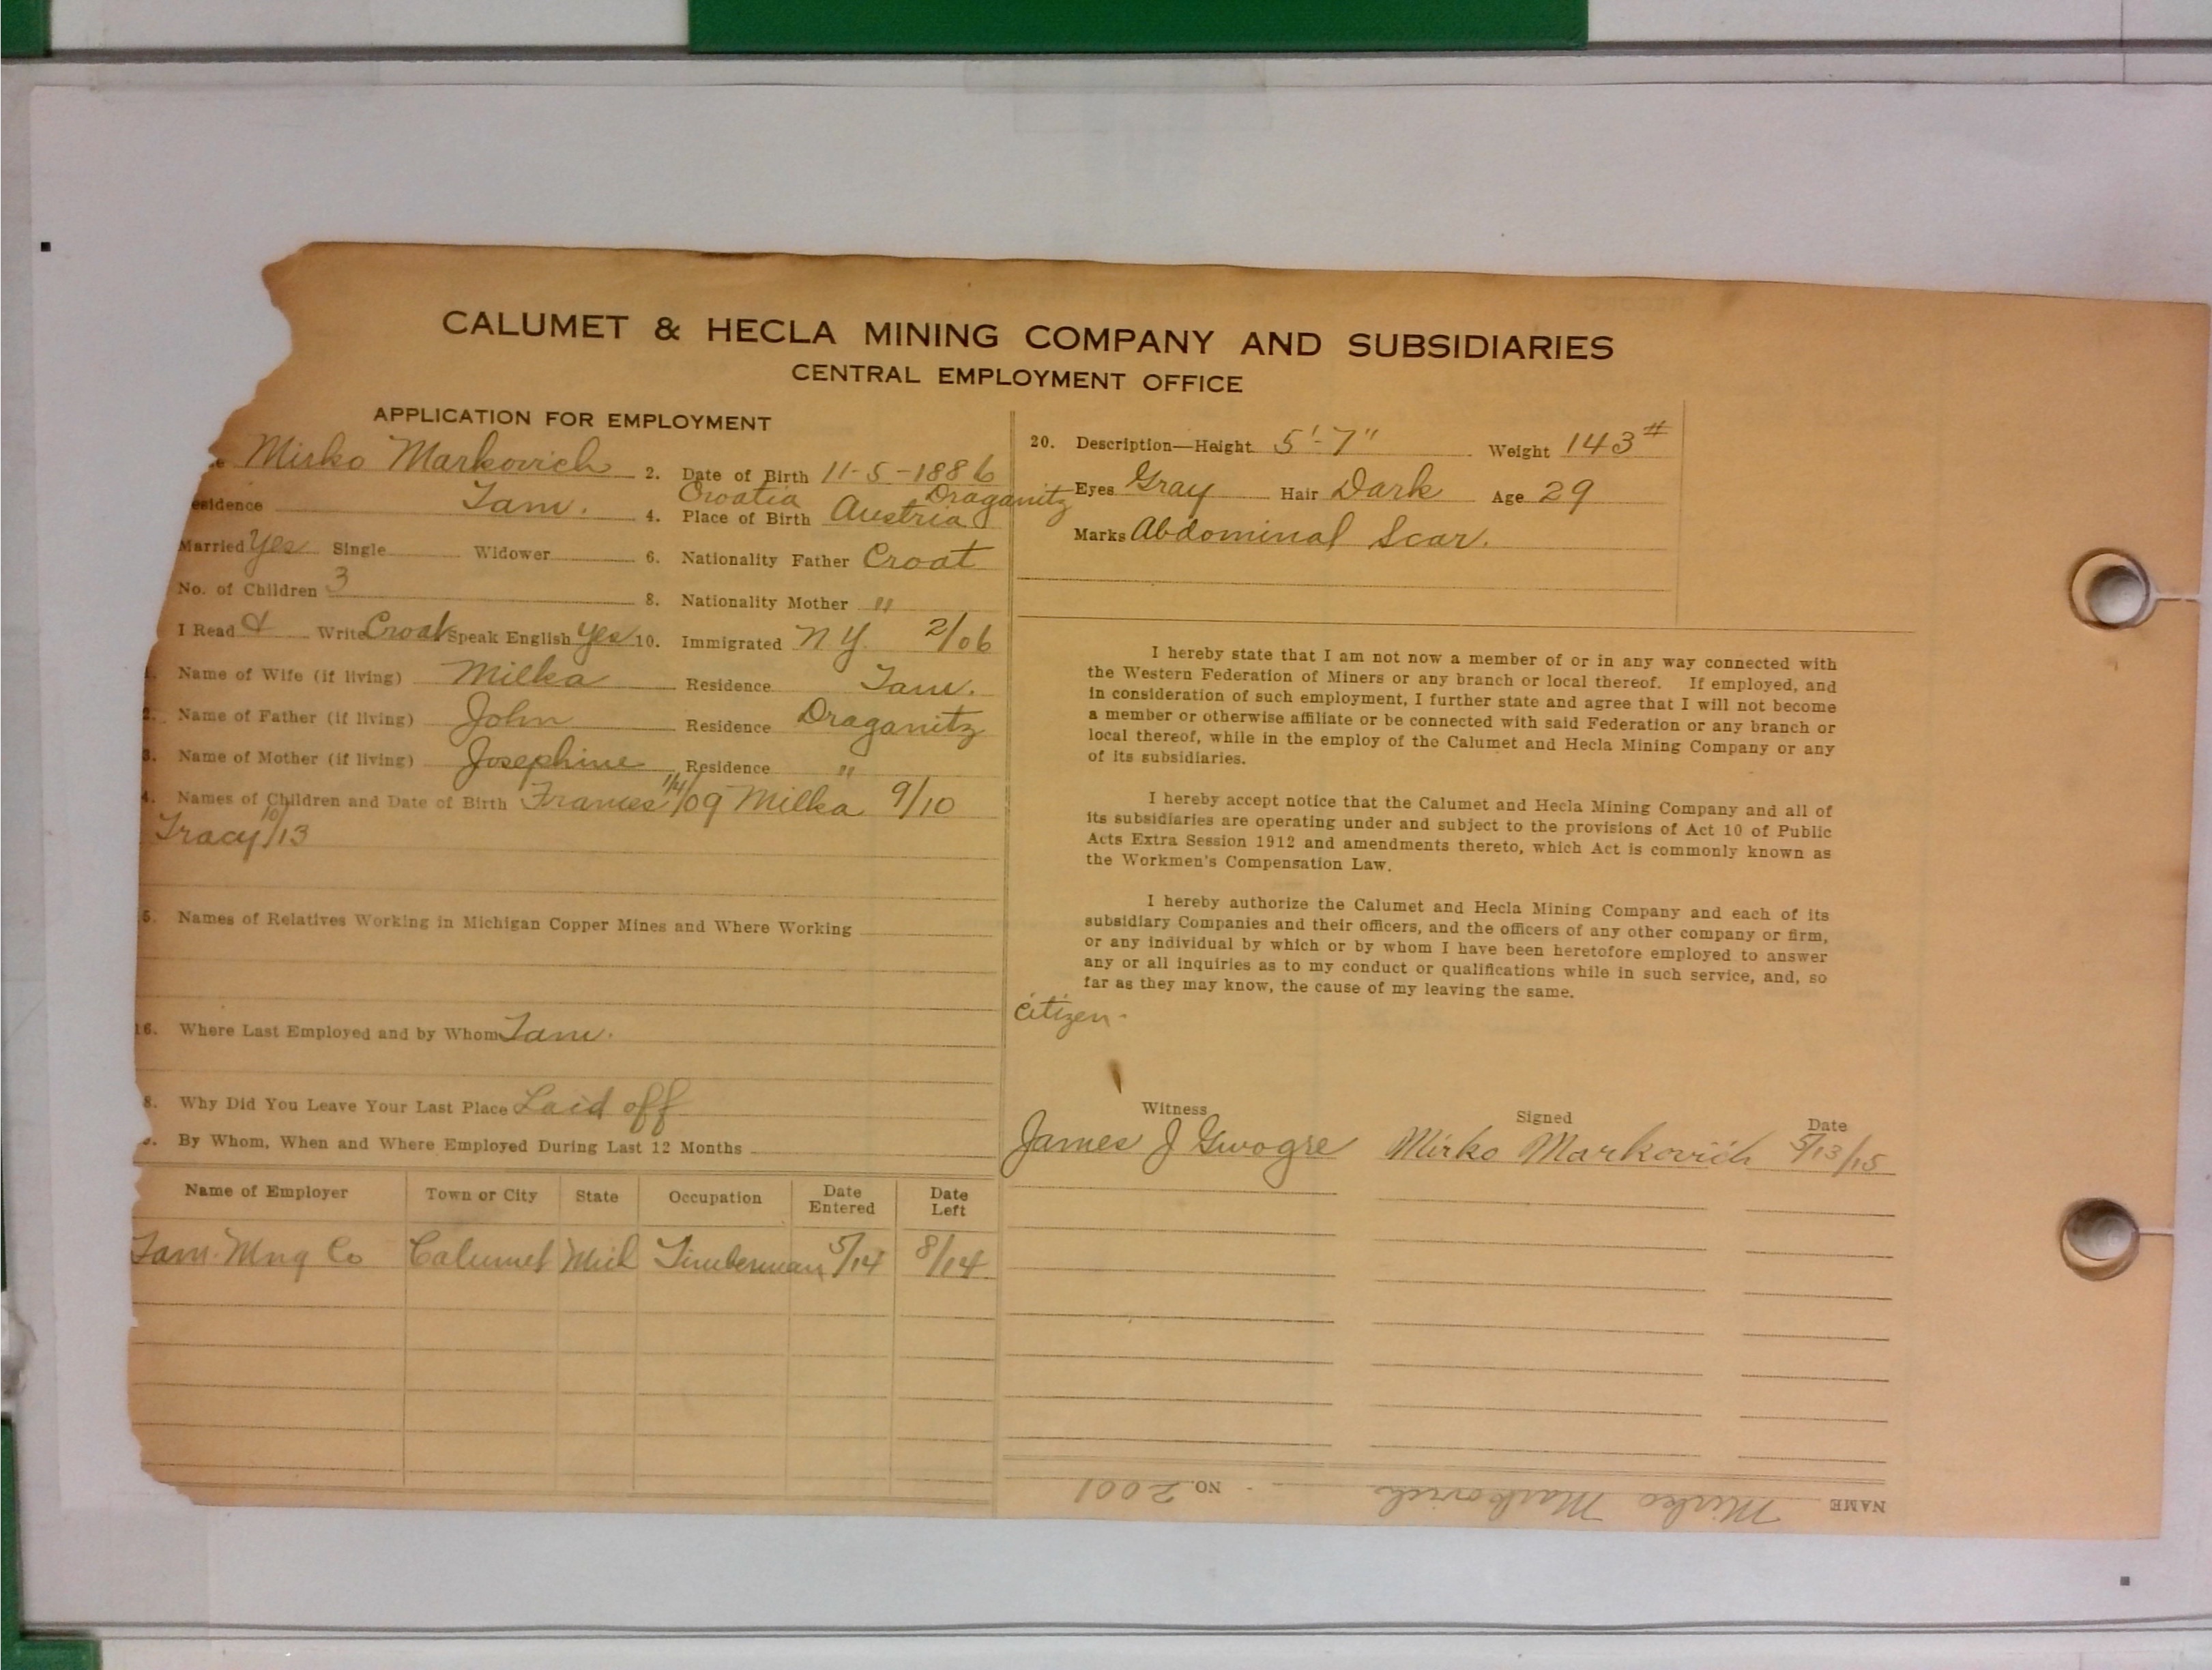 CALUMET & HECLA MINING COMPANY AND SUBSIDIARIES
CENTRAL EMPLOYMENT OFFICE
APPLICATION FOR EMPLOYMENT
e Mirko Markovich 2. Date of Birth 11-5-1886
esidence Tam. 4. Place of Birth Croatia Austria Draganitz
Married Yes Single Widower 6. Nationality Father Croat
No. of Children 3 8. Nationality Mother "
I Read & Write Croat Speak English Yes 10. Immigrated N Y. 2/06
Name of Wife (if living) Milka Residence Tam.
2. Name of Father (if living) John Residence Draganitz
3. Name of Mother (if living) Josephine Residence "
4. Names of Children and Date of Birth Frances 1/4/09 Milka 9/10
Tracy 10/13
5. Names of Relatives Working in Michigan Copper Mines and Where Working
16. Where Last Employed and by Whom Tam.
8. Why Did You Leave Your Last Place Laid off
By Whom, When and Where Employed During Last 12 Months
Name of Employer Town or City State Occupation Date Entered Date Left
Tam. Mng Co Calumet Mich Timberman 5/14 8/14
20. Description—Height 5'-7" Weight 143#
Eyes Gray Hair Dark Age 29
Marks Abdominal Scar.
I hereby state that I am not now a member of or in any way connected with
the Western Federation of Miners or any branch or local thereof. If employed, and
in consideration of such employment, I further state and agree that I will not become
a member or otherwise affiliate or be connected with said Federation or any branch or
local thereof, while in the employ of the Calumet and Hecla Mining Company or any
of its subsidiaries.
I hereby accept notice that the Calumet and Hecla Mining Company and all of
its subsidiaries are operating under and subject to the provisions of Act 10 of Public
Acts Extra Session 1912 and amendments thereto, which Act is commonly known as
the Workmen's Compensation Law.
I hereby authorize the Calumet and Hecla Mining Company and each of its
subsidiary Companies and their officers, and the officers of any other company or firm,
or any individual by which or by whom I have been heretofore employed to answer
any or all inquiries as to my conduct or qualifications while in such service, and, so
far as they may know, the cause of my leaving the same.
citizen.
Witness Signed Date
James J Mirko Markovich 5/13/15
NAME Mirko Markovich NO. 2001